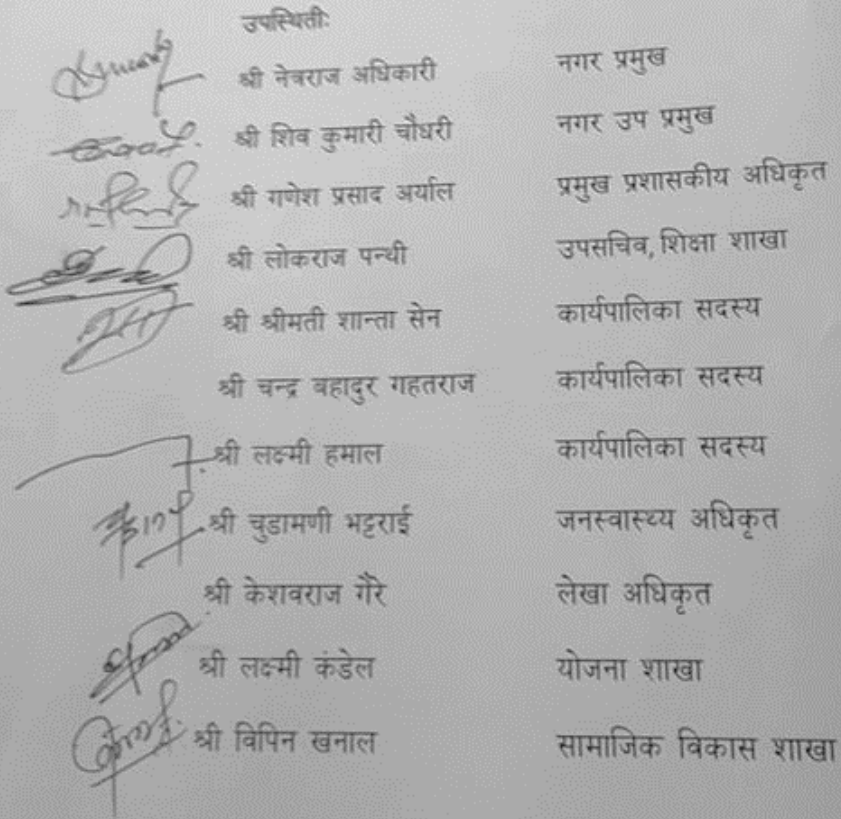 उपस्थितीः
श्री नेत्रराज अधिकारी नगर प्रमुख
श्री शिव कुमारी चौधरी नगर उप प्रमुख
श्री गणेश प्रसाद अर्याल प्रमुख प्रशासकीय अधिकृत
श्री लोकराज पन्थी उपसचिव, शिक्षा शाखा
श्री श्रीमती शान्ता सेन कार्यपालिका सदस्य
श्री चन्द्र बहादुर गहतराज कार्यपालिका सदस्य
श्री लक्ष्मी हमाल कार्यपालिका सदस्य
श्री चुडामणी भट्टराई जनस्वास्थ्य अधिकृत
श्री केशवराज गैरे लेखा अधिकृत
श्री लक्ष्मी कंडेल योजना शाखा
श्री विपिन खनाल सामाजिक विकास शाखा